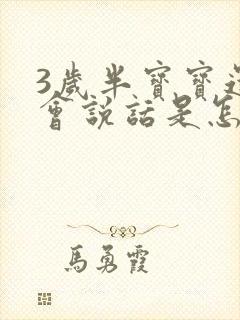 3歲半寶寶
會說話是怎
馬勇霞